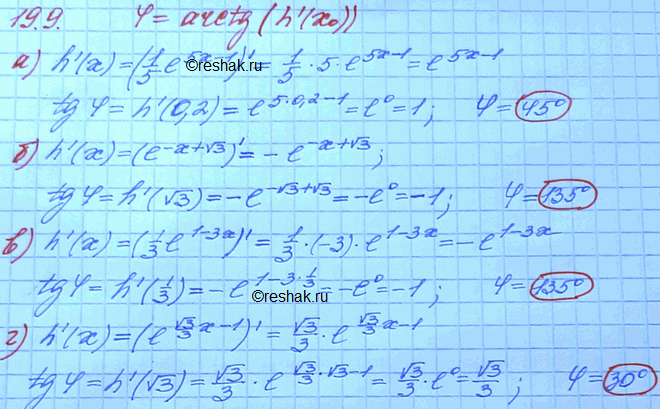 19.9. φ = arctg (h'(x₀))
а) h'(x) = (1/5 e^(5x-1))' = 1/5 · 5 · e^(5x-1) = e^(5x-1)
©reshak.ru
tg φ = h'(0,2) = e^(5·0,2-1) = e⁰ = 1; φ = 45°
б) h'(x) = (e^(-x+√3))' = -e^(-x+√3);
tg φ = h'(√3) = -e^(-√3+√3) = -e⁰ = -1; φ = 135°
в) h'(x) = (1/3 e^(1-3x))' = 1/3 · (-3) · e^(1-3x) = -e^(1-3x)
tg φ = h'(1/3) = -e^(1-3·1/3) = -e⁰ = -1; φ = 135°
©reshak.ru
г) h'(x) = (e^(√3/3 x-1))' = √3/3 · e^(√3/3 x-1)
tg φ = h'(√3) = √3/3 · e^(√3/3·√3-1) = √3/3 · e⁰ = √3/3; φ = 30°